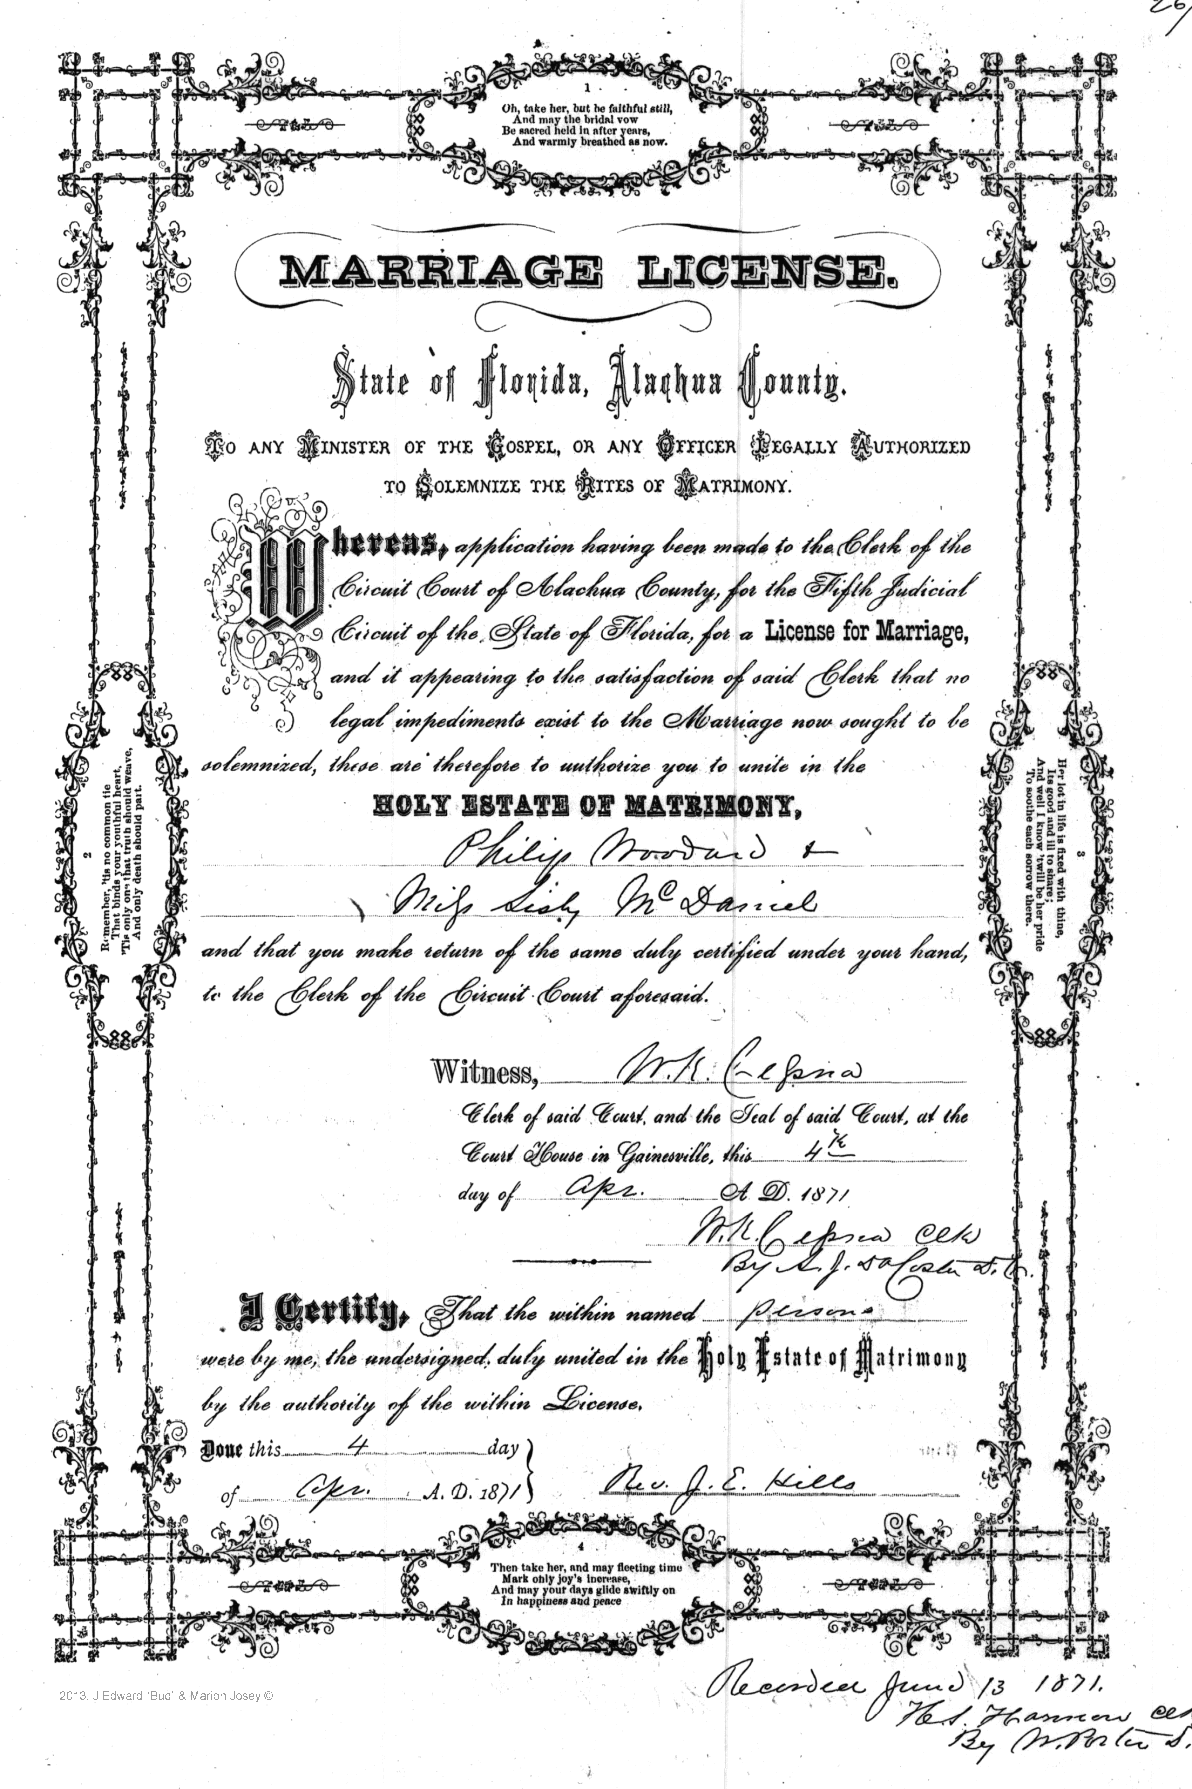 26
1
Oh, take her, but be faithful still,
And may the bridal vow
Be sacred held in after years,
And warmly breathed as now.
MARRIAGE LICENSE.
State of Florida, Alachua County.
TO ANY MINISTER OF THE GOSPEL, OR ANY OFFICER LEGALLY AUTHORIZED
TO SOLEMNIZE THE RITES OF MATRIMONY.
Whereas, application having been made to the Clerk of the
Circuit Court of Alachua County, for the Fifth Judicial
Circuit of the State of Florida, for a License for Marriage,
and it appearing to the satisfaction of said Clerk that no
legal impediments exist to the Marriage now sought to be
solemnized, these are therefore to authorize you to unite in the
HOLY ESTATE OF MATRIMONY,
Philip Woodard &
Miss McDaniel
and that you make return of the same duly certified under your hand,
to the Clerk of the Circuit Court aforesaid.
2
Remember, 'tis no common tie
That binds your youthful heart,
'Tis only one that truth should weave,
And only death should part.
3
Her lot in life is fixed with thine,
Its good and ill to share;
And well I know 'twill be her pride
To soothe each sorrow there.
Witness, W. K. Cessna
Clerk of said Court, and the Seal of said Court, at the
Court House in Gainesville, this 4th
day of Apr. A. D. 1871
W. K. Cessna Clk
By S. J. DaCosta D. C.
I Certify, That the within named persons
were by me, the undersigned, duly united in the Holy Estate of Matrimony
by the authority of the within License.
Done this 4 day
of Apr. A. D. 1871
Rev. J. E. Hills
4
Then take her, and may fleeting time
Mark only joy's increase,
And may your days glide swiftly on
In happiness and peace
2013. J Edward 'Bud' & Marion Josey ©
Recorded June 13 1871.
H. S. Harmon Clk
By W. Porter D.